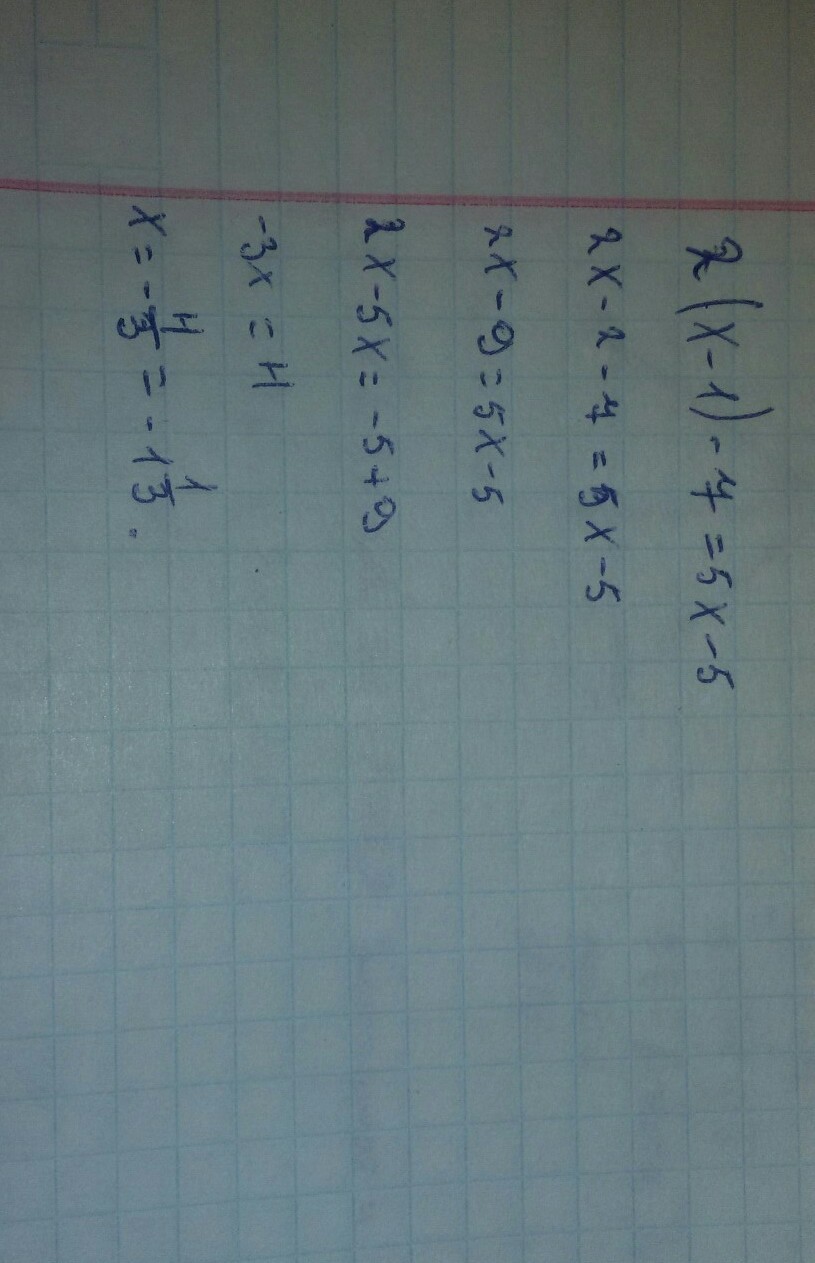 2(x-1)-7=5x-5
2x-2-7=5x-5
2x-9=5x-5
2x-5x=-5+9
-3x=4
x=-4/3=-1 1/3.